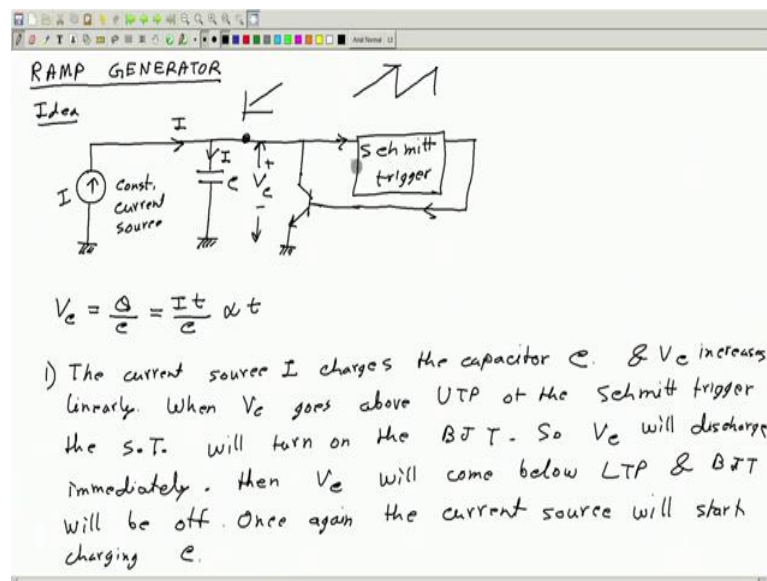 Arial Normal 12
RAMP GENERATOR
Idea
I
I
Schmitt
trigger
I
Const.
current
source
C
+
Vc
-
Vc = Q/C = It/C ∝ t
1) The current source I charges the capacitor C. & Vc increases
linearly. When Vc goes above UTP of the Schmitt trigger
the S.T. will turn on the BJT. So Vc will discharge
immediately. then Vc will come below LTP & BJT
will be off. Once again the current source will start
charging C.